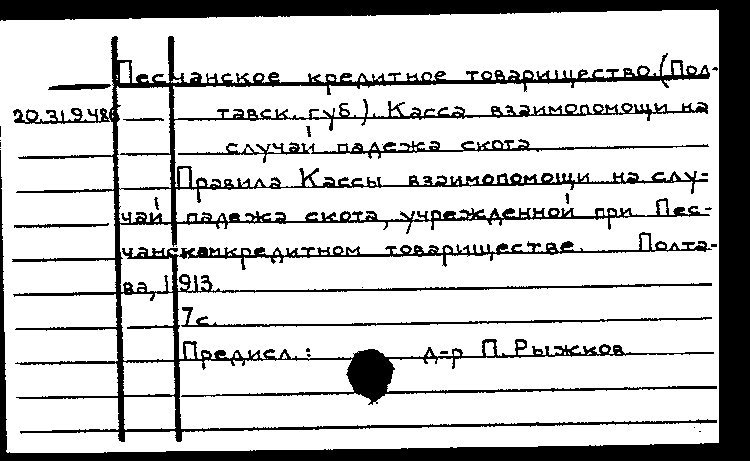 Песчанское кредитное товарищество.(Пол-
20.319.486 тавск. губ.). Касса взаимопомощи на
случай падежа скота.
Правила Кассы взаимопомощи на слу-
чай падежа скота, учрежденной при Пес-
чанском кредитном товариществе. Полта-
ва, 1913.
7с.
Предисл.: д-р П. Рыжков